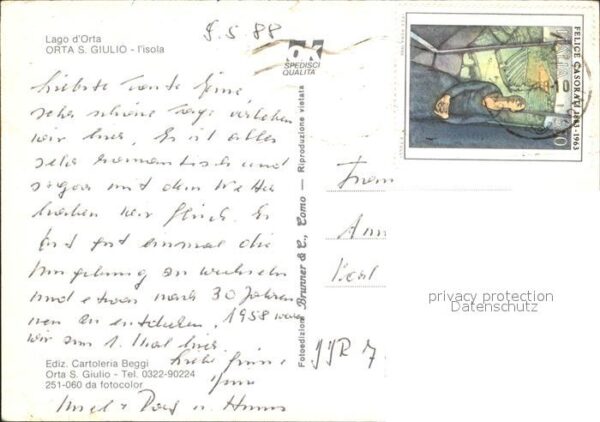 Lago d'Orta
ORTA S. GIULIO - l'isola
9.5.88
SPEDISCI
QUALITÀ
FELICE CASORATI 1883-1963
ITALIA
liebste Tante
sehr schöne Tage verleben
wir hier. Es ist alles
sehr romantisch und
sogar mit dem Wetter
haben wir Glück. Es
tut gut einmal die
Umgebung zu wechseln
und etwas nach 30 Jahren
neu zu entdecken. 1958 waren
wir zum 1. Mal hier.
liebe Grüsse
u.
Fotoedizioni Brunner & C., Como — Riproduzione vietata
Ediz. Cartoleria Beggi
Orta S. Giulio - Tel. 0322-90224
251-060 da fotocolor
privacy protection
Datenschutz